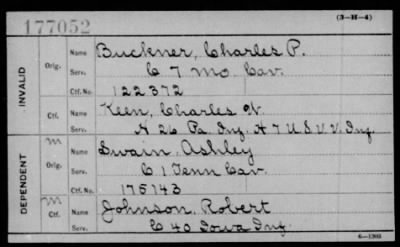 (3-H-4)
177052
INVALID
Orig.
Name Buckner, Charles P.
Serv. C 7 Mo. Cav.
Ctf. No. 122372
Ctf.
Name Keen, Charles W.
Serv. A 26 Pa. Inf. H 7 U.S.V.V. Inf.
DEPENDENT
M
Orig.
Name Swain, Ashley
Serv. C 1 Tenn Cav.
Ctf. No. 175143
M
Ctf.
Name Johnson, Robert
Serv. C 40 Iowa Inf.